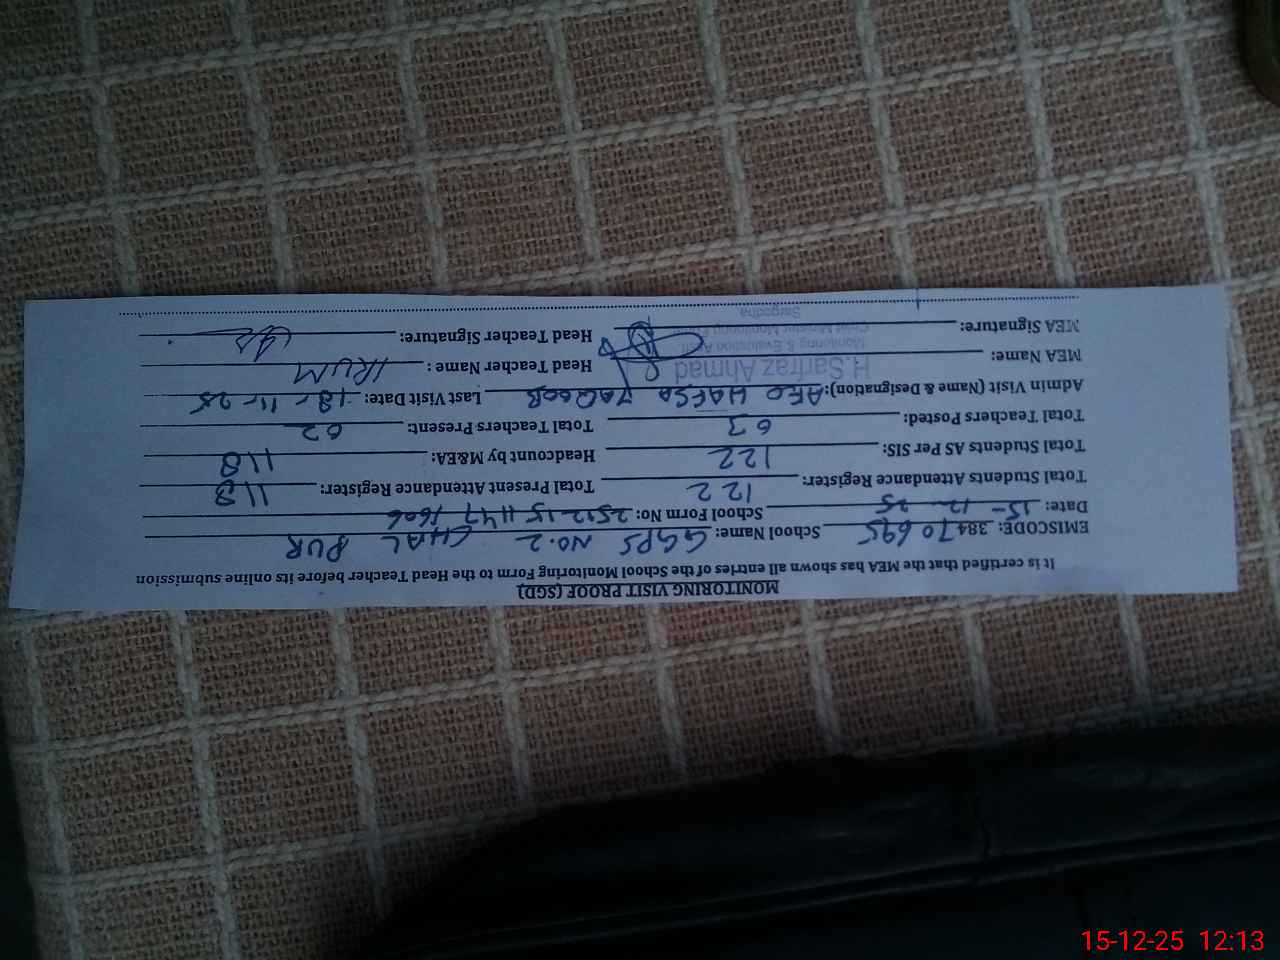 MONITORING VISIT PROOF (SGD)
It is certified that the MEA has shown all entries of the School Monitoring Form to the Head Teacher before its online submission
EMISCODE: 38470695 School Name: GGPS NO.2 CHAL PUR
Date: 15-12-25 School Form No: 2512151147 1606
Total Students Attendance Register: 122 Total Present Attendance Register: 118
Total Students AS Per SIS: 122 Headcount by M&EA: 118
Total Teachers Posted: 03 Total Teachers Present: 02
Admin Visit (Name & Designation): AEO HAFSA YAQOOB Last Visit Date: 18-11-25
MEA Name: H.Sarfraz Ahmad Head Teacher Name : IRUM
Monitoring & Evaluation Asstt.
Chief Minister Monitoring Force
MEA Signature: Head Teacher Signature:
Sargodha
15-12-25 12:13